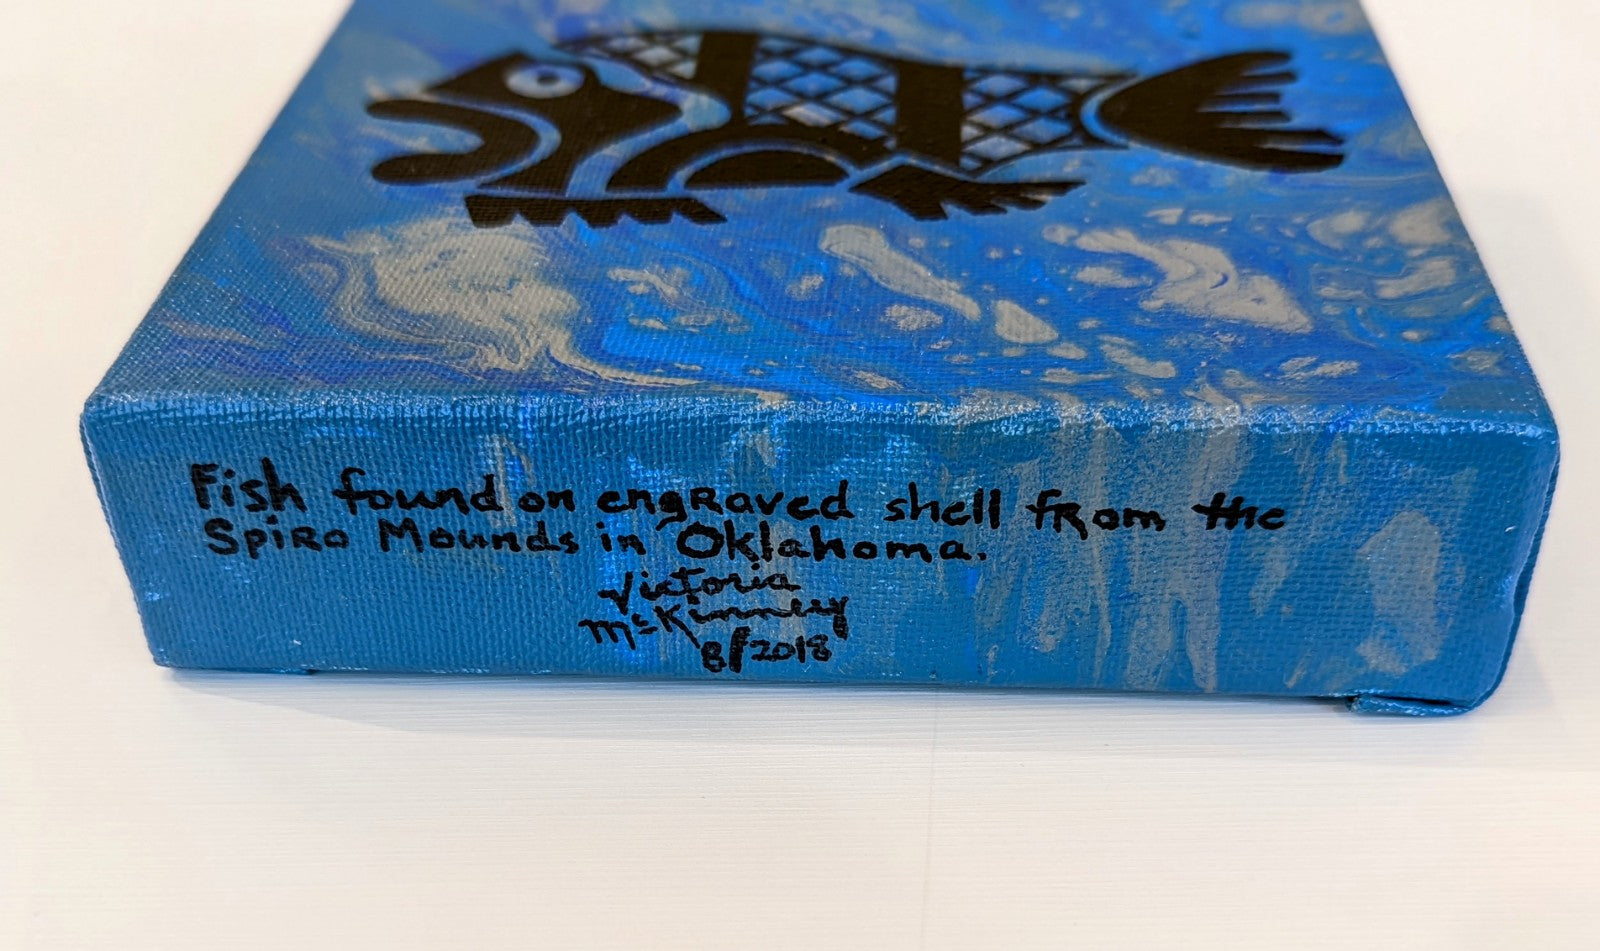 Fish found on engraved shell from the
Spiro Mounds in Oklahoma.
Victoria
McKinney
8/2018